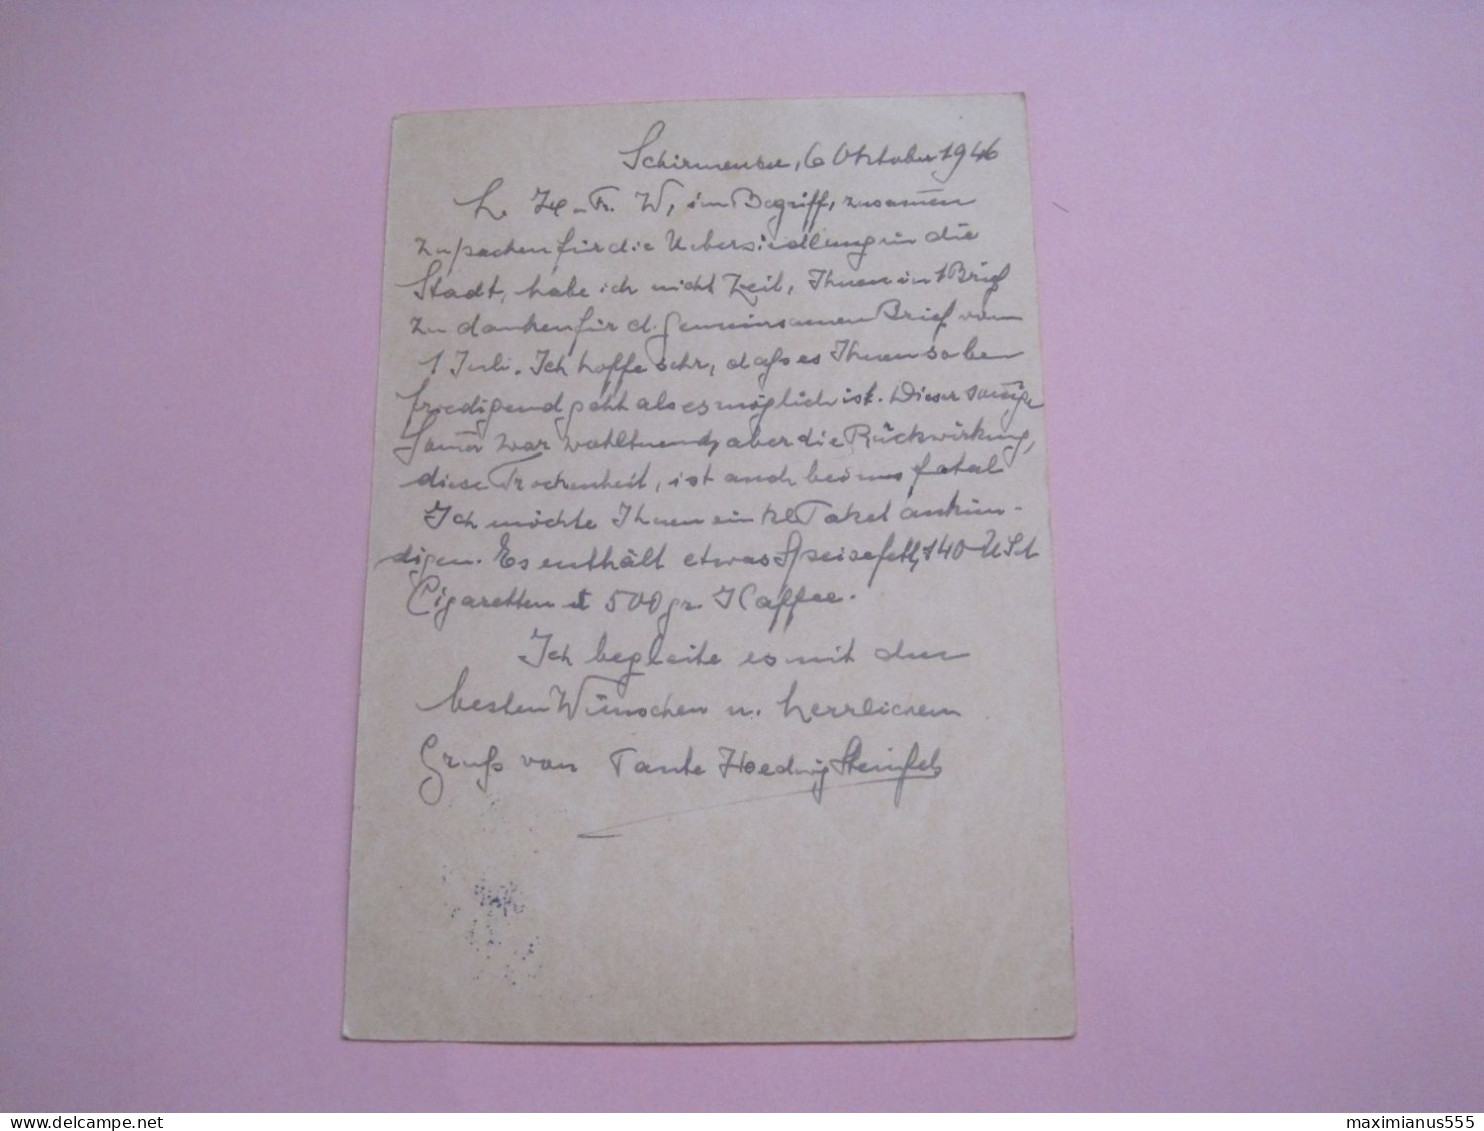 Schirmensee, 6 Oktober 1946
L. H. u. Fr. W, im Begriff, zusam̅en
zu packen für die Uebersiedlung in die
Stadt, habe ich nicht Zeit, Ihnen in 1 Brief
zu danken für d. gemeinsamen Brief vom
1 Juli. Ich hoffe sehr, daß es Ihnen so be
friedigend geht als es möglich ist. Dieser sonnige
Som̅er war wohltuend, aber die Rückwirkung,
diese Trockenheit, ist auch bei uns fatal
Ich möchte Ihnen ein kl Paket ankün-
digen. Es enthält etwas Speisefett, 140 USA
Cigaretten & 500 gr. Kaffee.
Ich begleite es mit den
besten Wünschen u. herzlichem
Gruß von Tante Hedwig Steinfels
maximianus555